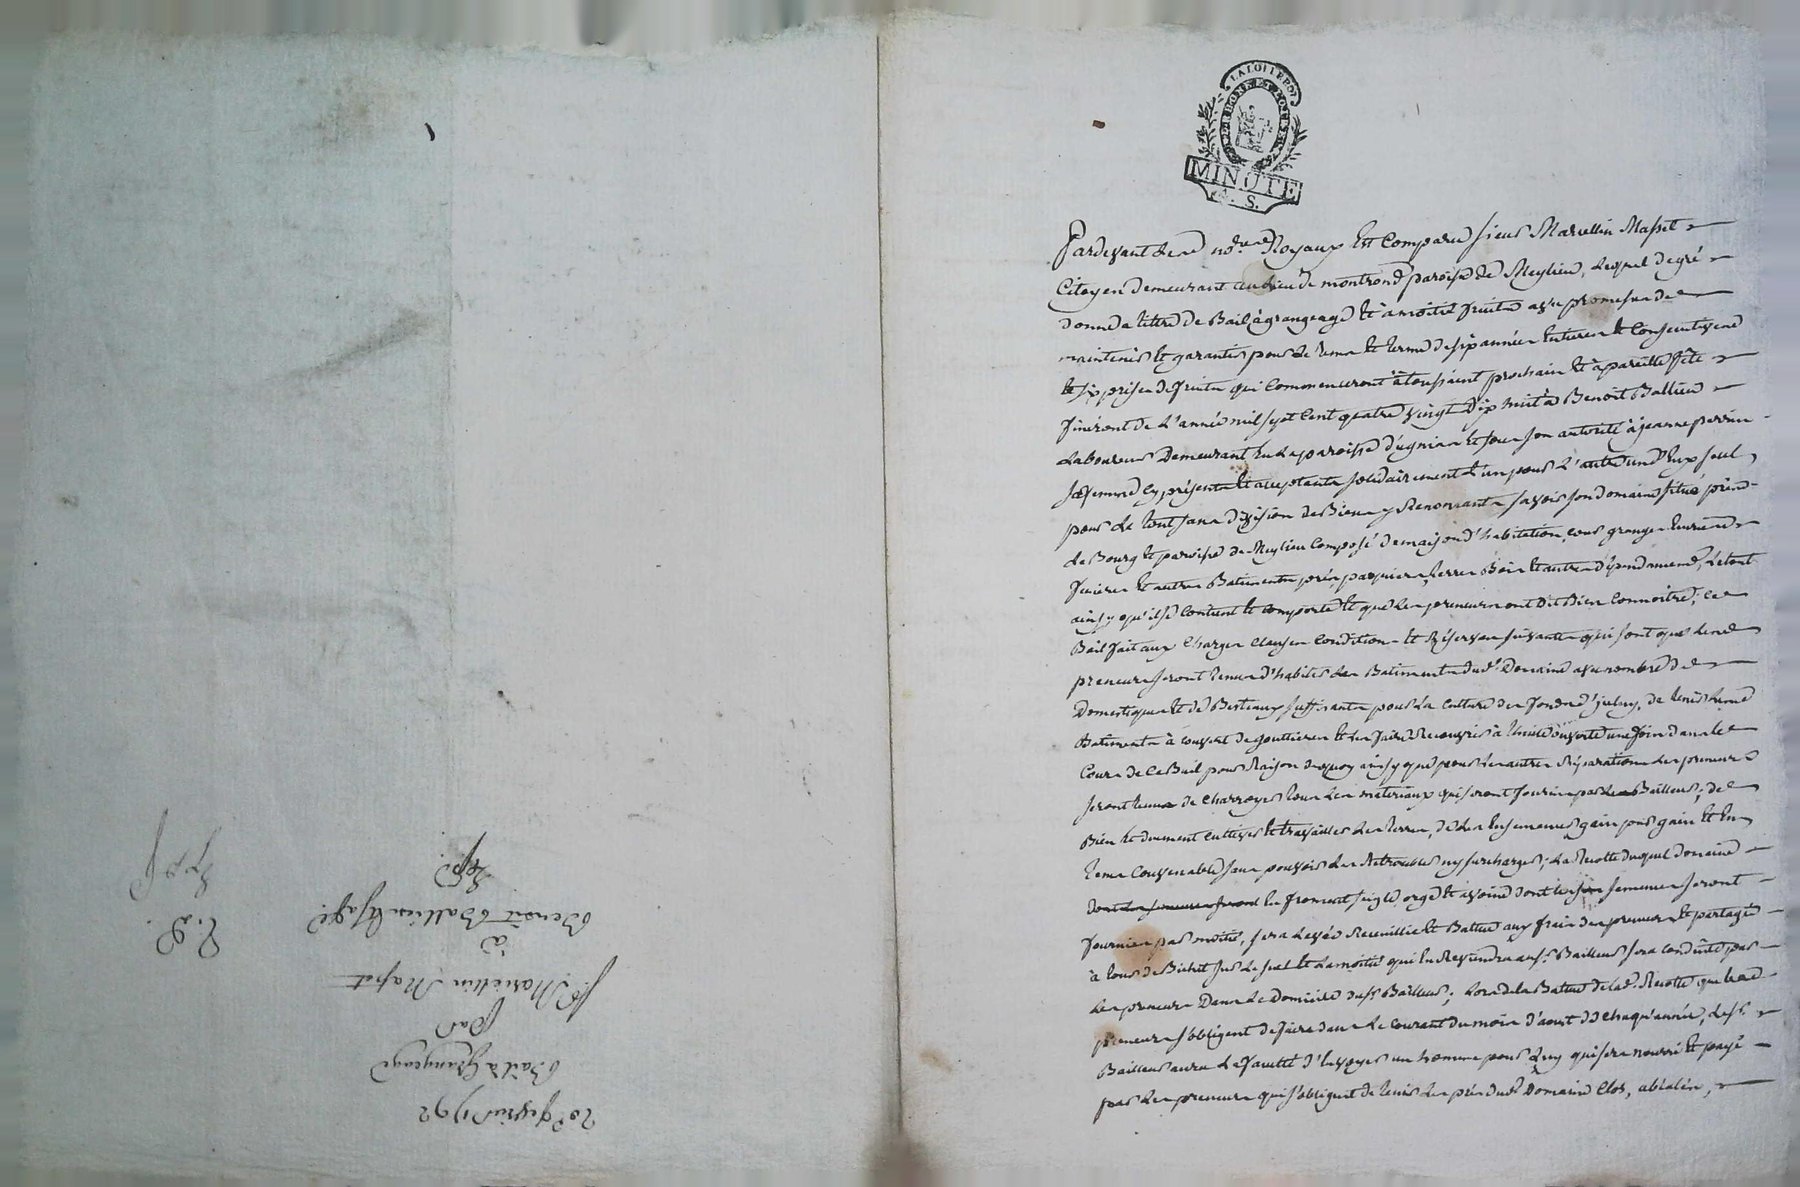 LA LOI LE ROI
MINUTE
S.
Pardevant les nores Royaux Est Comparu sieur Marcellin Masset
Citoyen demeurant au lieu de montrond paroisse de Meylieu, Lequel de gré
donne a titre de Bail à grangeage et à moitié fruits avec promesse de
maintenir et garantir pour le tems et terme de six années Entieres et Consecutives
et six prises de fruits qui Commenceront à toussaint prochain et à pareille fête
finiront de L'année mil sept Cent quatre vingt dix huit à Benoit Ballieu
Laboureur Demeurant En la paroisse d'ugnias et sous son autorité à jeanne perrin
sa femme Cy présents et acceptants solidairement L'un pour L'autre un d'Eux seul
pour Le tout sans division de Biens y Renonçants savoir son domaine situé prés
Le Bourg et paroisse de Meylieu Composé de maison d'habitation, cour granges Ecuries
fenieres et autres Batiments prés, paquiers, terres Bois et autres dépendances, Le tout
ainsy qu'il se Contient et comporte et que Les preneurs ont dit Bien Connoitre; ce
Bail fait aux Charges Clauses Conditions et Réserves suivantes qui sont que Lesd.
preneurs seront tenus d'habiter Les Batiments dud. Domaine avec nombre de
Domestiques et de Bestiaux suffisants pour La culture des fonds d'iceluy, de tenir Lesd.
Batiments à couvert de gouttieres et Les faire Recouvrir à thuile ouverte une fois dans Le
Cours de Ce Bail pour Raison de quoy ainsy que pour Les autres Réparations Les preneurs
seront tenus de Charroyer tous Les materiaux qui seront fournis par Le Bailleur; de
Bien et duement cultiver et travailler Les terres, de Les Ensemencer gain pour gain et En
tems Convenable sans pouvoir Les Retroubler ny surcharger; La Recolte duquel domaine
dont Les semences seront En froment seigle, orge et avoine dont Les semences seront
fournies par moitié, sera Levée Recueillie et Battue aux frais des preneurs et partagée
à tour de Bichet sur Le suel et La moitié qui En Reviendra au sr. Bailleur sera conduite par
Les preneurs Dans Le Domicile du sr. Bailleur; Lors de la Battue de Lad. Recolte que Lesd.
preneurs s'obligent de faire dans Le courant du mois d'aout de chaqu'année, Le sr.
Bailleur aura La faculté d'Envoyer un homme pour Luy qui sera nourri et payé
par Les preneurs qui s'obligent de tenir Les prés dud. Domaine Clos,
20e fevrier 1792
Bail à Grangeage
Par
Sr. Marcellin Masset
à
Benoit Ballieu
Exp.